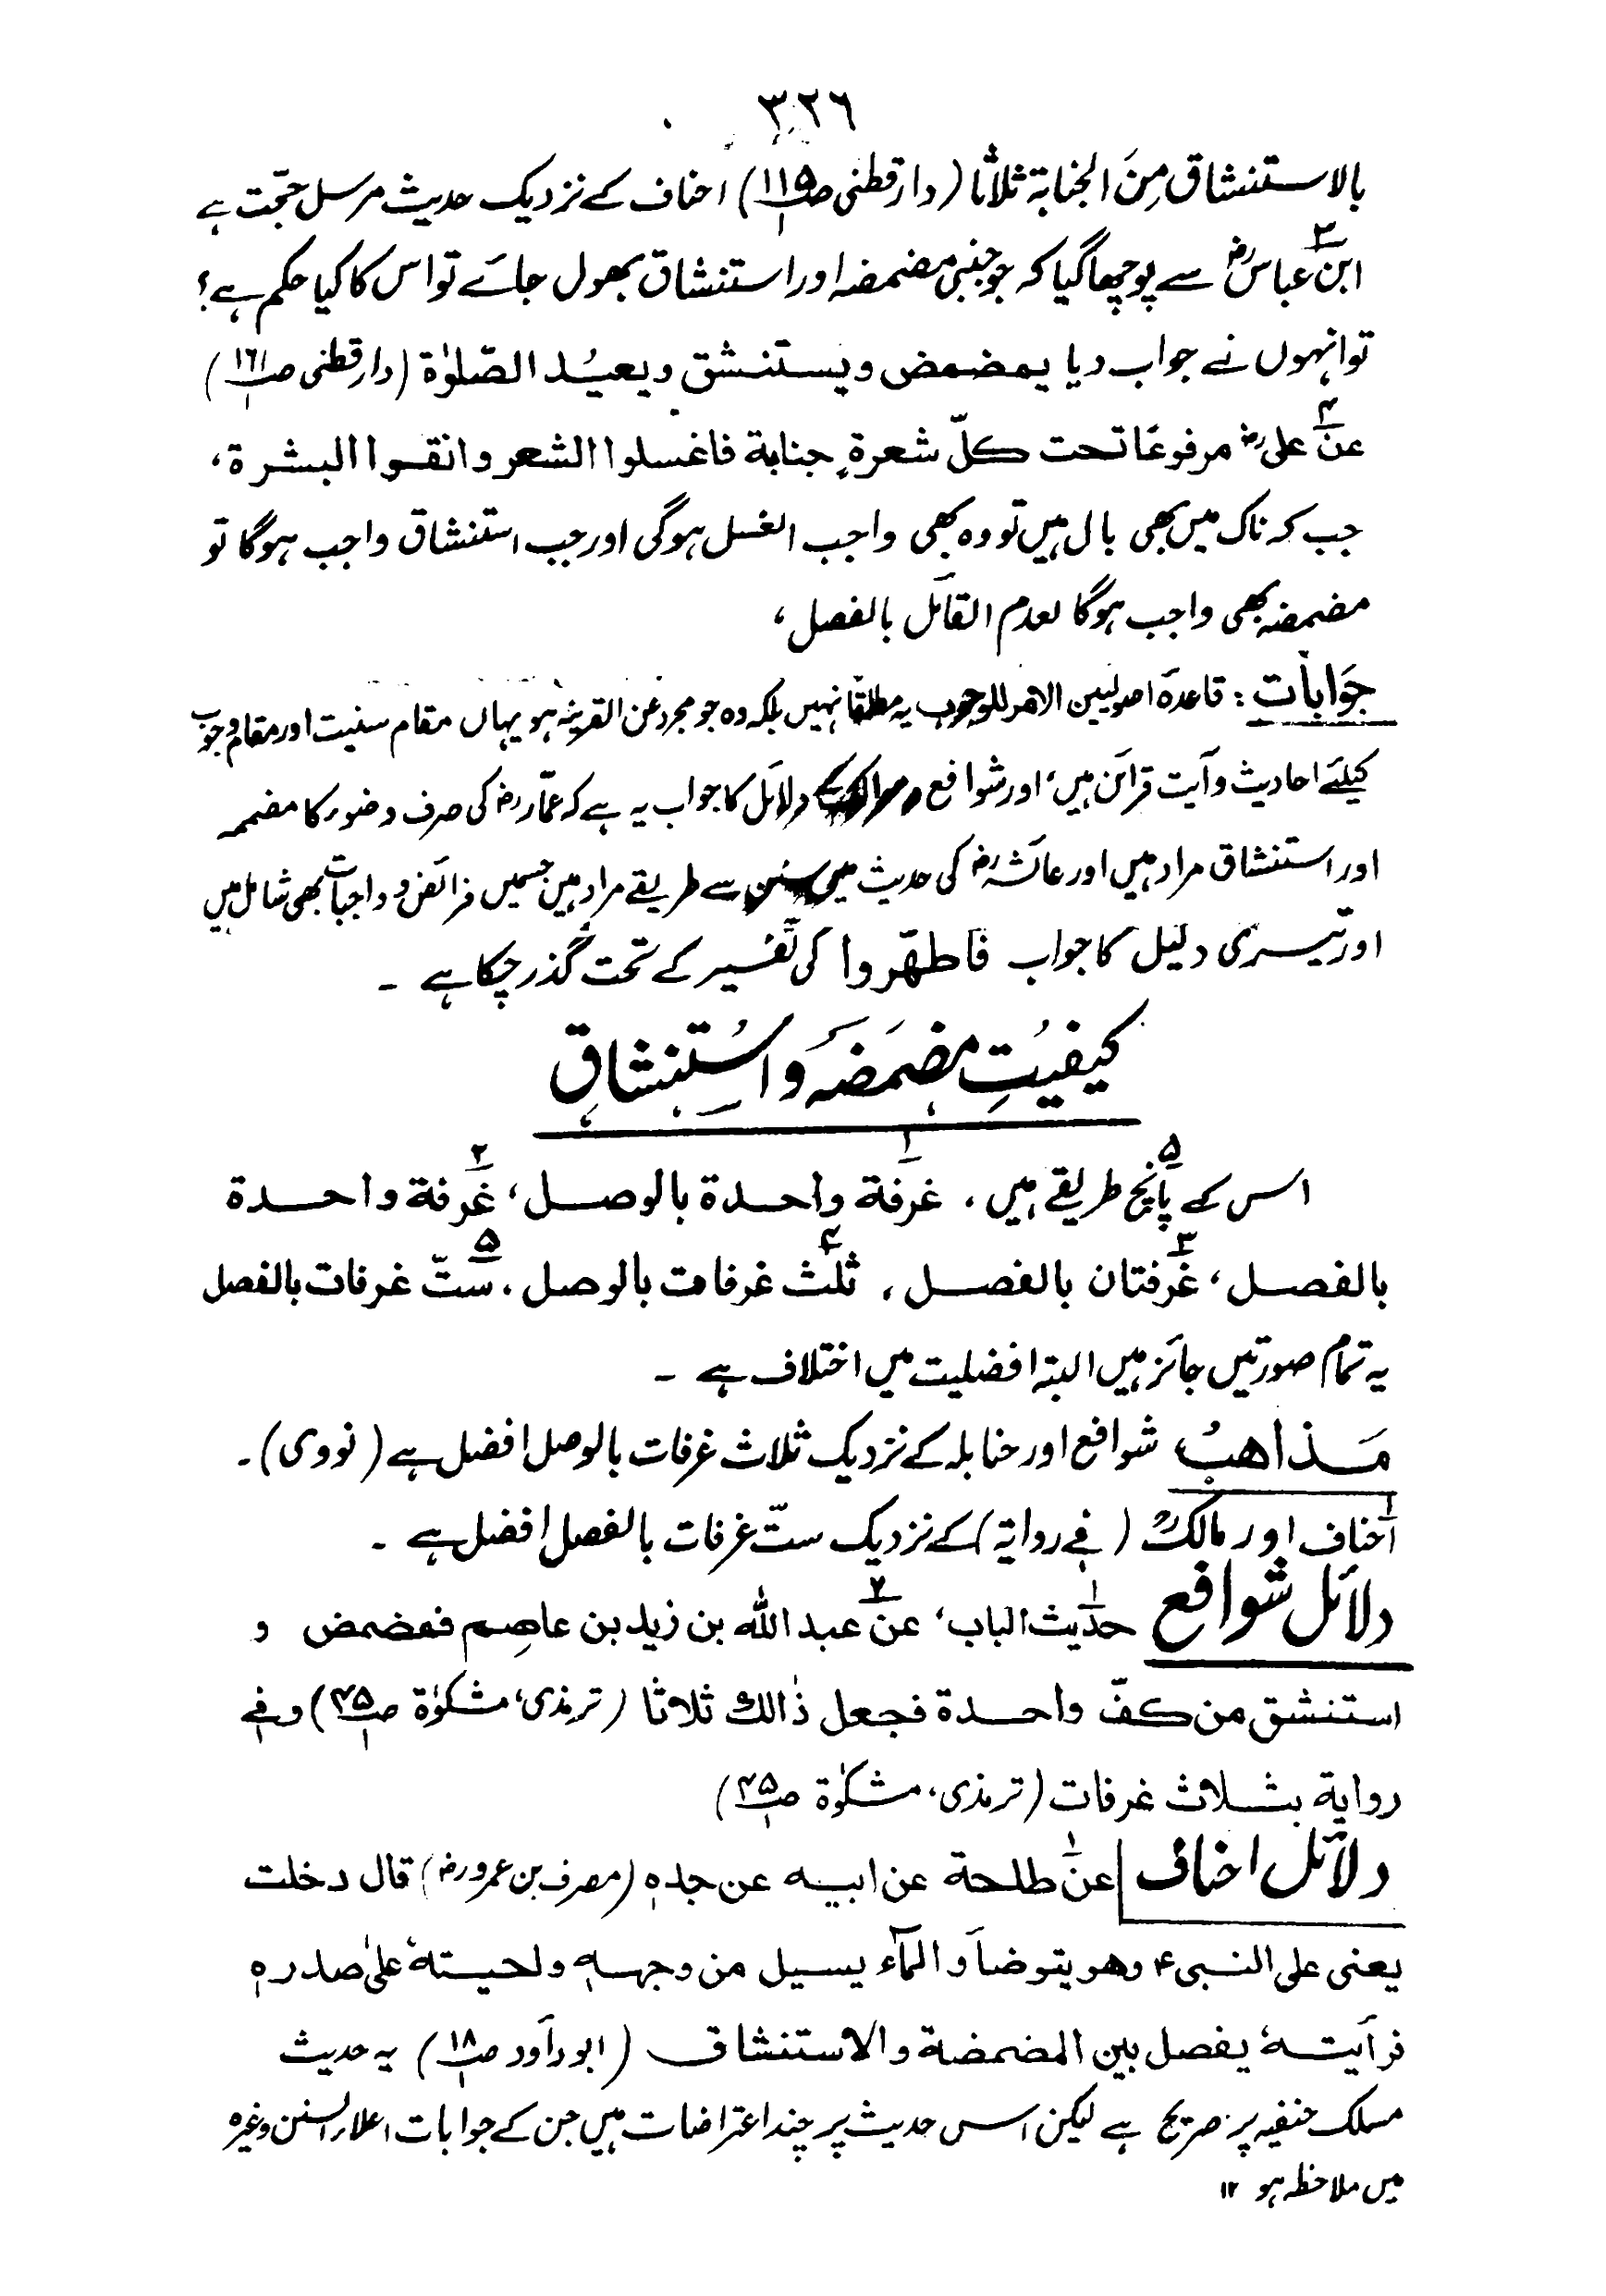 ٣٢٦
بالاستنشاق مِنَ الجنابة ثلاثًا (دارقطنی ص۱۱۵/۱) احناف کے نزدیک حدیث مرسل حجّت ہے
۳ ابن عباسؓ سے پوچھا گیا کہ جو جنبی مضمضہ اور استنشاق بھول جائے تو اس کا کیا حکم ہے؟
تو انہوں نے جواب دیا یمضمض ویستنشق ویعیُد الصّلوٰة (دارقطنی ص۱۶۱/۱)
۴ عن علیؓ مرفوعًا تحت کلّ شعرةٍ جنابة فاغسلوا الشعر وانقوا البشرة،
جب کہ ناک میں بھی بال ہیں تو وہ بھی واجب الغسل ہوگی اور جب استنشاق واجب ہوگا تو
مضمضہ بھی واجب ہوگا لعدم القائل بالفصل،
جَوابات : قاعدہ اصولیین الامر للوجوب یہ مطلقًا نہیں بلکہ وہ جو مجرد عن القرینہ ہو یہاں مقام سنیت اور مقام وجوب
کیلئے احادیث وآیت قرائن ہیں، اور شوافع دلائل کا جواب یہ ہے کہ عمّارؓ کی صرف وضوء کا مضمہ
اور استنشاق مراد ہیں اور عائشہؓ کی حدیث میں سنن سے طریقے مراد ہیں جسمیں فرائض و واجبات بھی شامل ہیں
اور تیسری دلیل کا جواب فاطهّروا کی تفسیر کے تحت گذر چکا ہے ۔
کیفیتِ مضمَضَہ وَ اسُتنشاقِ
اس کے ۵ پانچ طریقے ہیں ، ۱ غرفة واحدة بالوصل، ۲ غرفة واحدة
بالفصل، ۳ غرفتان بالفصل ، ۴ ثلٰث غرفات بالوصل ، ۵ ستّ غرفات بالفصل
یہ تمام صورتیں جائز ہیں البتہ افضلیت میں اختلاف ہے ۔
مَذاهبُ شوافع اور حنابلہ کے نزدیک ثلاث غرفات بالوصل افضل ہے (نووی) ۔
۱ احناف اور مالکؒ (فی روایة) کے نزدیک ستّ غرفات بالفصل افضل ہے ۔
دلائل شوافع ۱ حدیث الباب، ۲ عن عبد اللہ بن زید بن عاصم فمضمض و
استنشق من کفّ واحدة فجعل ذٰالك ثلاثا (ترمذی، مشکوٰة ص۴۵/۱) وفی
روایة بثلاث غرفات (ترمذی، مشکوٰة ص۴۵/۱)
دلائل احناف ۱ عن طلحة عن ابیه عن جدہٖ (مصرف بن عمروؓ) قال دخلت
یعنی علی النبیؐ وهو یتوضأ والمآء یسیل من وجهہٖ ولحیتهٗ علیٰ صدرہٖ
فرأیتهٗ یفصل بین المضمضة والاستنشاق (ابوداؤد ص۱۸/۱) یہ حدیث
مسلک حنفیہ پر صریح ہے لیکن اس حدیث پر چند اعتراضات ہیں جن کے جوابات اعلاء السنن وغیرہ
میں ملاحظہ ہو ۱۲